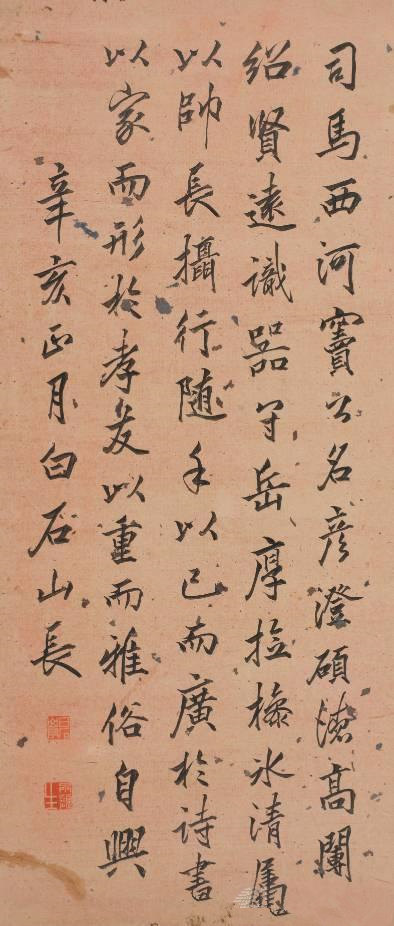 司馬西河竇公名彥澄碩德高闌
紹賢遠識器宇岳厚撿橡冰清屬
以帥長攝行隨手以已而廣於詩書
以家而形於孝友以重而雅俗自興
辛亥正月白石山長